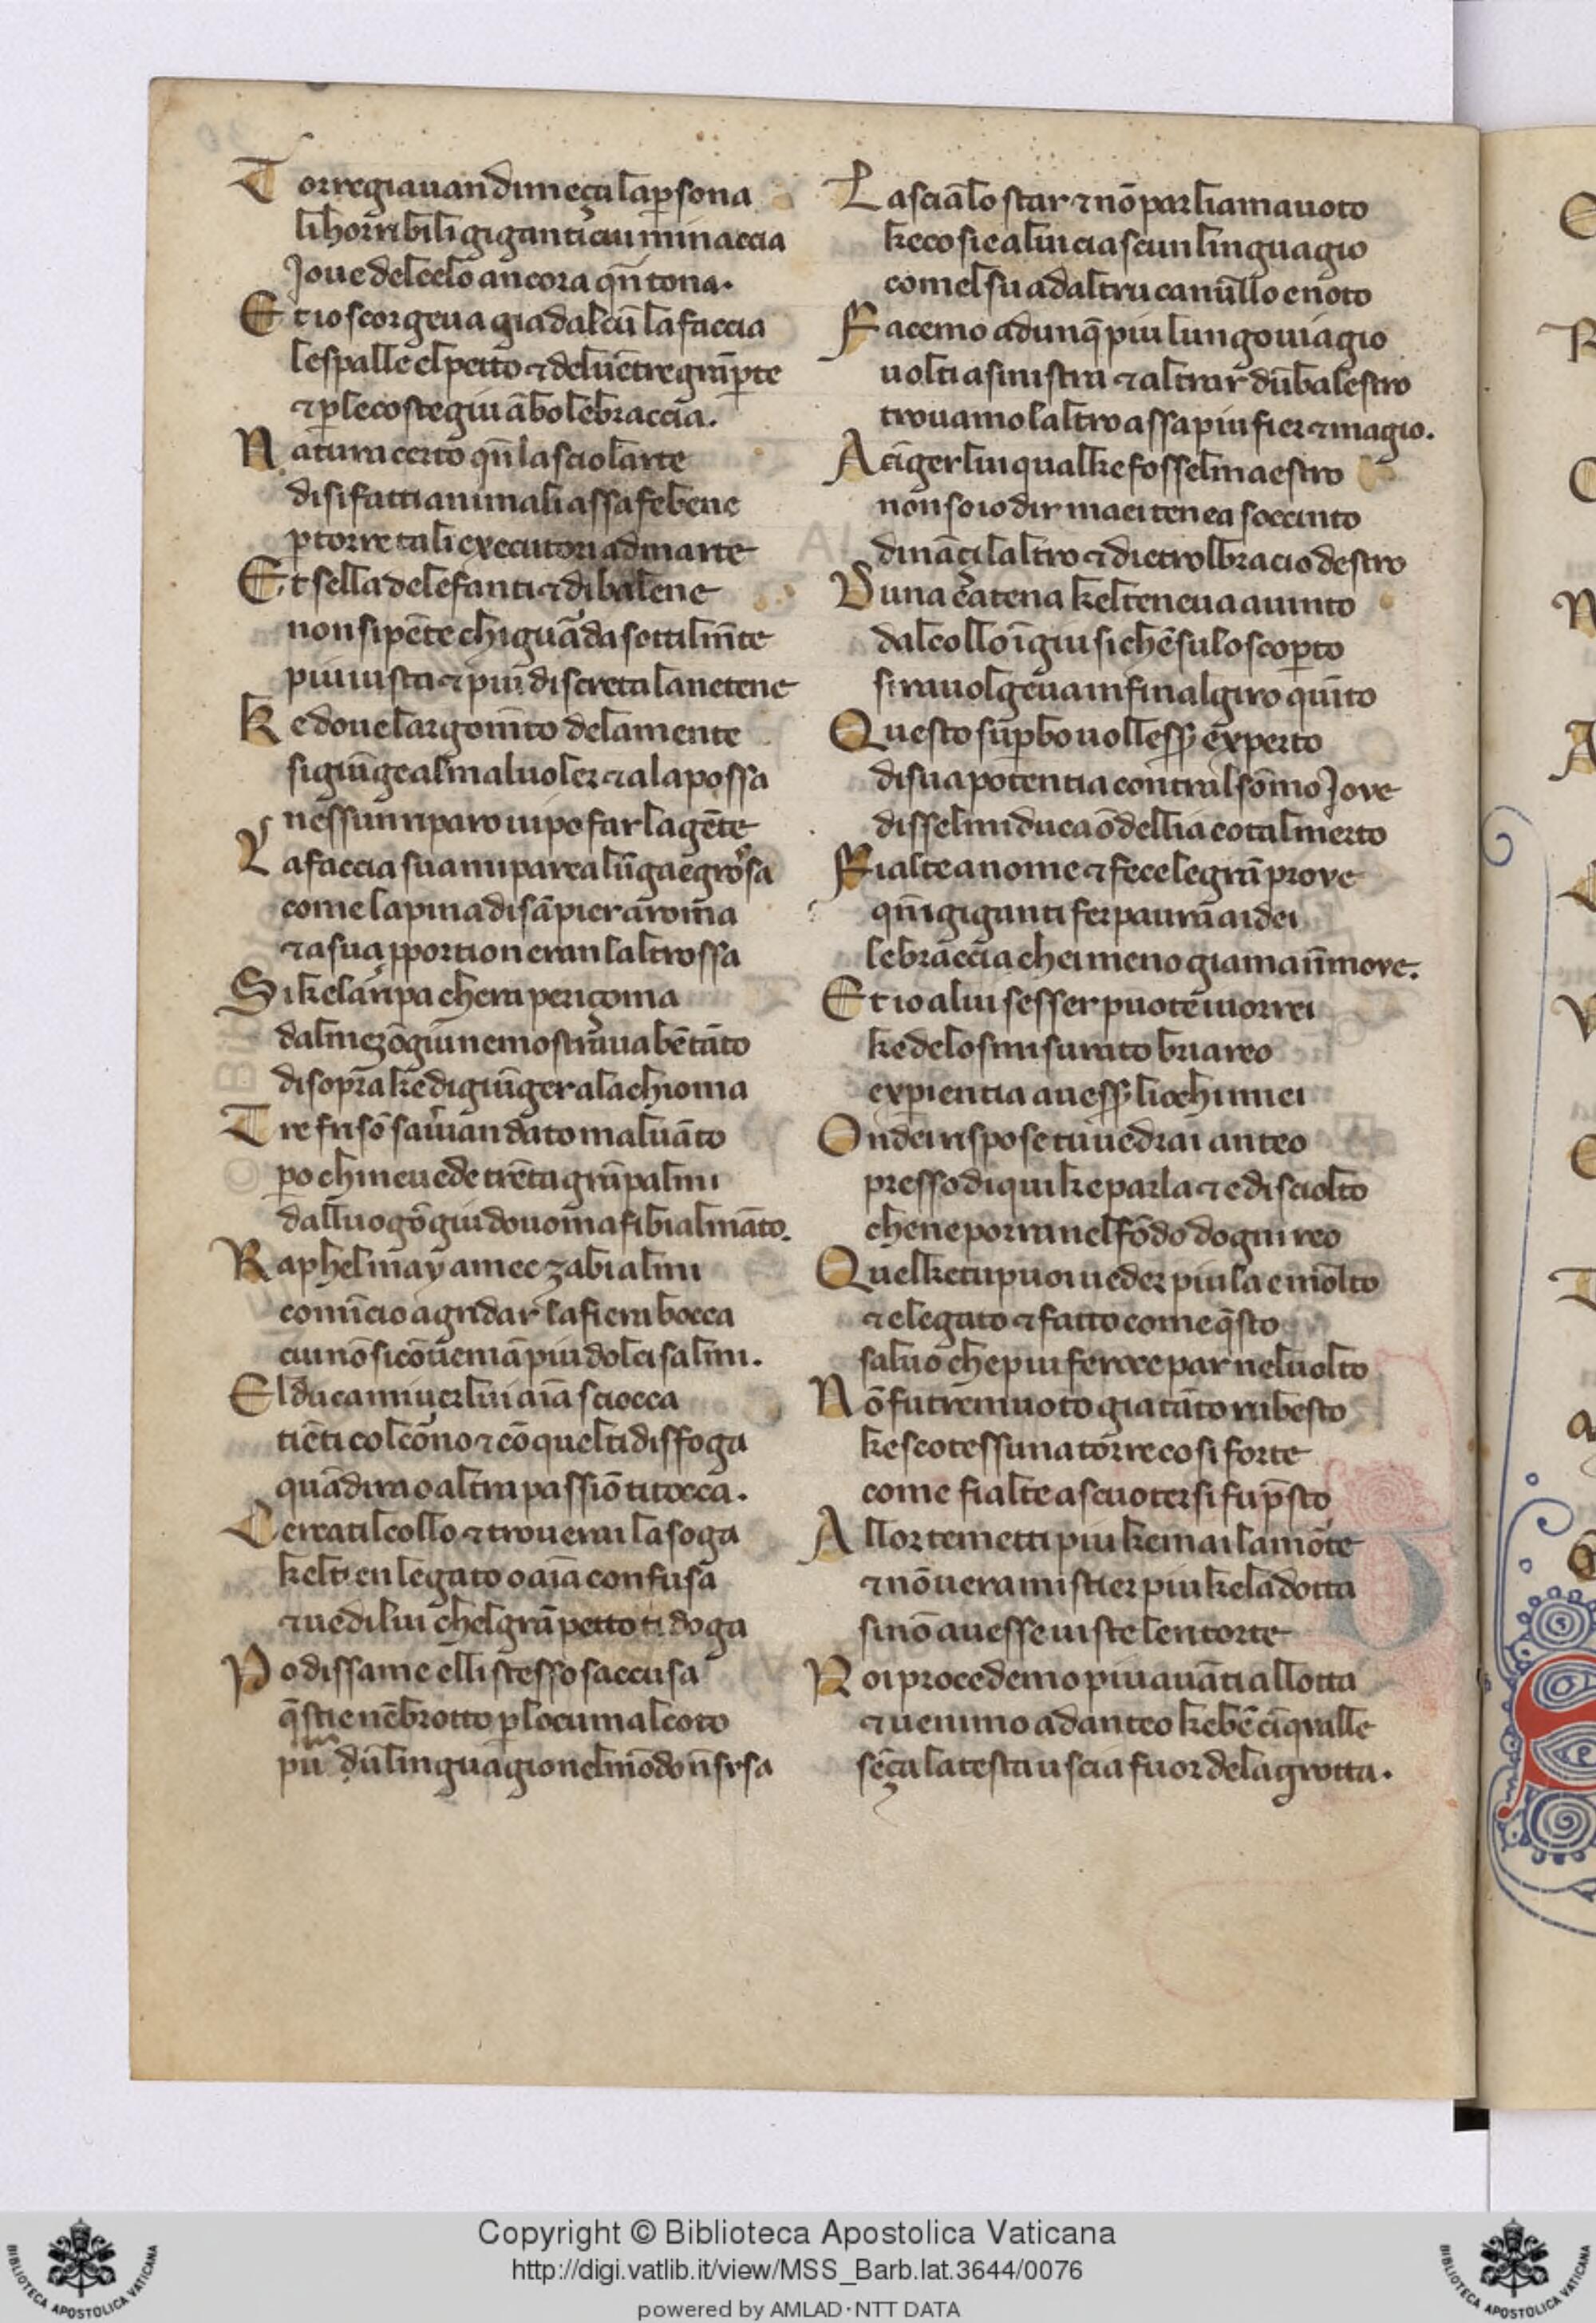 Torregiauan dimeça la ꝑsona
li horribili giganti cui minaccia
Joue del celo ancora qn̄ tona.
Et io scorgeua gia dalcū la faccia
le spalle el petto ⁊ del uētre grā ꝑte
⁊ ꝑ le coste giu ābo le braccia.
Natura certo qn̄ lascio larte
di si fatti animali assa fe bene
ꝑ torre tali executori ad marte
Et sella delefanti ⁊ di balene
non si pēte chi guāda sottilm̄te
piu iusta ⁊ piu discreta la ne tene
Ke doue largom̄to de la mente
sigiūge al mal uoler ⁊ a la possa
nessun riparo ui po far la gēte
La faccia sua mi parea lūga e grossa
come la pina di sā pier a roma
⁊ a sua ꝓportion eran laltrossa
Si ke la ripa chera periçoma
dal mezo ī giu ne mostraua bē tāto
di sopra ke di giūger a la chioma
Tre frisō sauian dato mal uāto
ꝑo chi neuede trēta grā palmi
dal luogo ī giu douoma fibial māto.
Raphel may amec zabi almi
comīcio a gridar la fiera bocca
cui nō si cōuenia piu dolci salmi.
El duca mi uer lui aīa sciocca
tiēti col corno ⁊ cō quel ti disfoga
quādira o altra passiō ti tocca.
Cercati l collo ⁊ trouerai la soga
kel tien legato o aīa confusa
⁊ uedi lui chel grā petto ti doga
Po dissa me elli stesso saccusa
q̄sti e nēbrotto ꝑ lo cu mal coto
pū dū linguagio nel mōdo n̄ susa
Lasciālo star ⁊ nō parliam a uoto
ke cosi e a lui ciascun linguagio
comel su ad altru ca nullo e noto
Facemo adunq̄ piu lungo uiagio
uolti a sinistra ⁊ al trar dū balestro
trouamo laltro assa piu fier ⁊ magio.
A ciger lui qual ke fossel maestro
non so io dir ma ei tenea soccinto
dināçi laltro ⁊ dietro l bracio destro
Duna catena kel teneua auinto
dal collo ī giu si che n su lo scoꝑto
si rauolgeua infinal giro quīto
Questo suꝑbo uollesser experto
di sua potentia contral sōmo Jove
dissel mi duca ōdelli a cotal merto
Fialte a nome ⁊ fece le grā prove
qn̄ i giganti fer paura ai dei
le braccia chei meno giama n̄ move.
Et io a lui sesser puote i uorrei
ke de lo smisurato briareo
exꝑientia auesser li ochi miei
Ondei rispose tu uedrai anteo
presso di qui ke parla ⁊ e disciolto
che ne porra nel fōdo dogni reo
Quel ke tu puo i ueder piu la e molto
⁊ e legato ⁊ fatto come q̄sto
saluo che piu feroce par nel uolto
Nō fu tremuoto gia tāto rubesto
ke scotessuna torre cosi forte
come fialte a scuotersi fu p̄sto
Allor temetti piu ke mai la mōte
⁊ nō uera mistier piu ke la dotta
si nō auesse uiste le ritorte
Noi procedemo piu auāti allotta
⁊ uenimo ad anteo ke bē cīq̄ alle
sēça la testa uscia fuor de la grotta.
Copyright © Biblioteca Apostolica Vaticana
http://digi.vatlib.it/view/MSS_Barb.lat.3644/0076
powered by AMLAD·NTT DATA
BIBLIOTECA APOSTOLICA VATICANA
BIBLIOTECA APOSTOLICA VATICANA